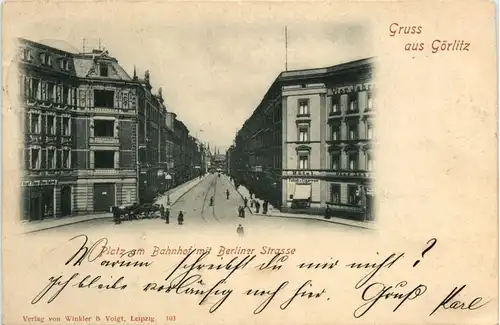 Gruss
aus Görlitz
Platz am Bahnhof mit Berliner Strasse
Warum schreibst du mir nicht?
Ich bleibe vorläufig noch hier. Gruß Karl
Verlag von Winkler & Voigt, Leipzig. 103